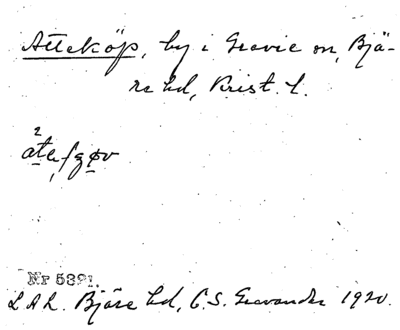 Atteköp, by i Grevie sn, Bjä-
re hd, Krist. l.
Nr 5391.
L.A.L. Bjäre hd, C.S. Gravander 1920.